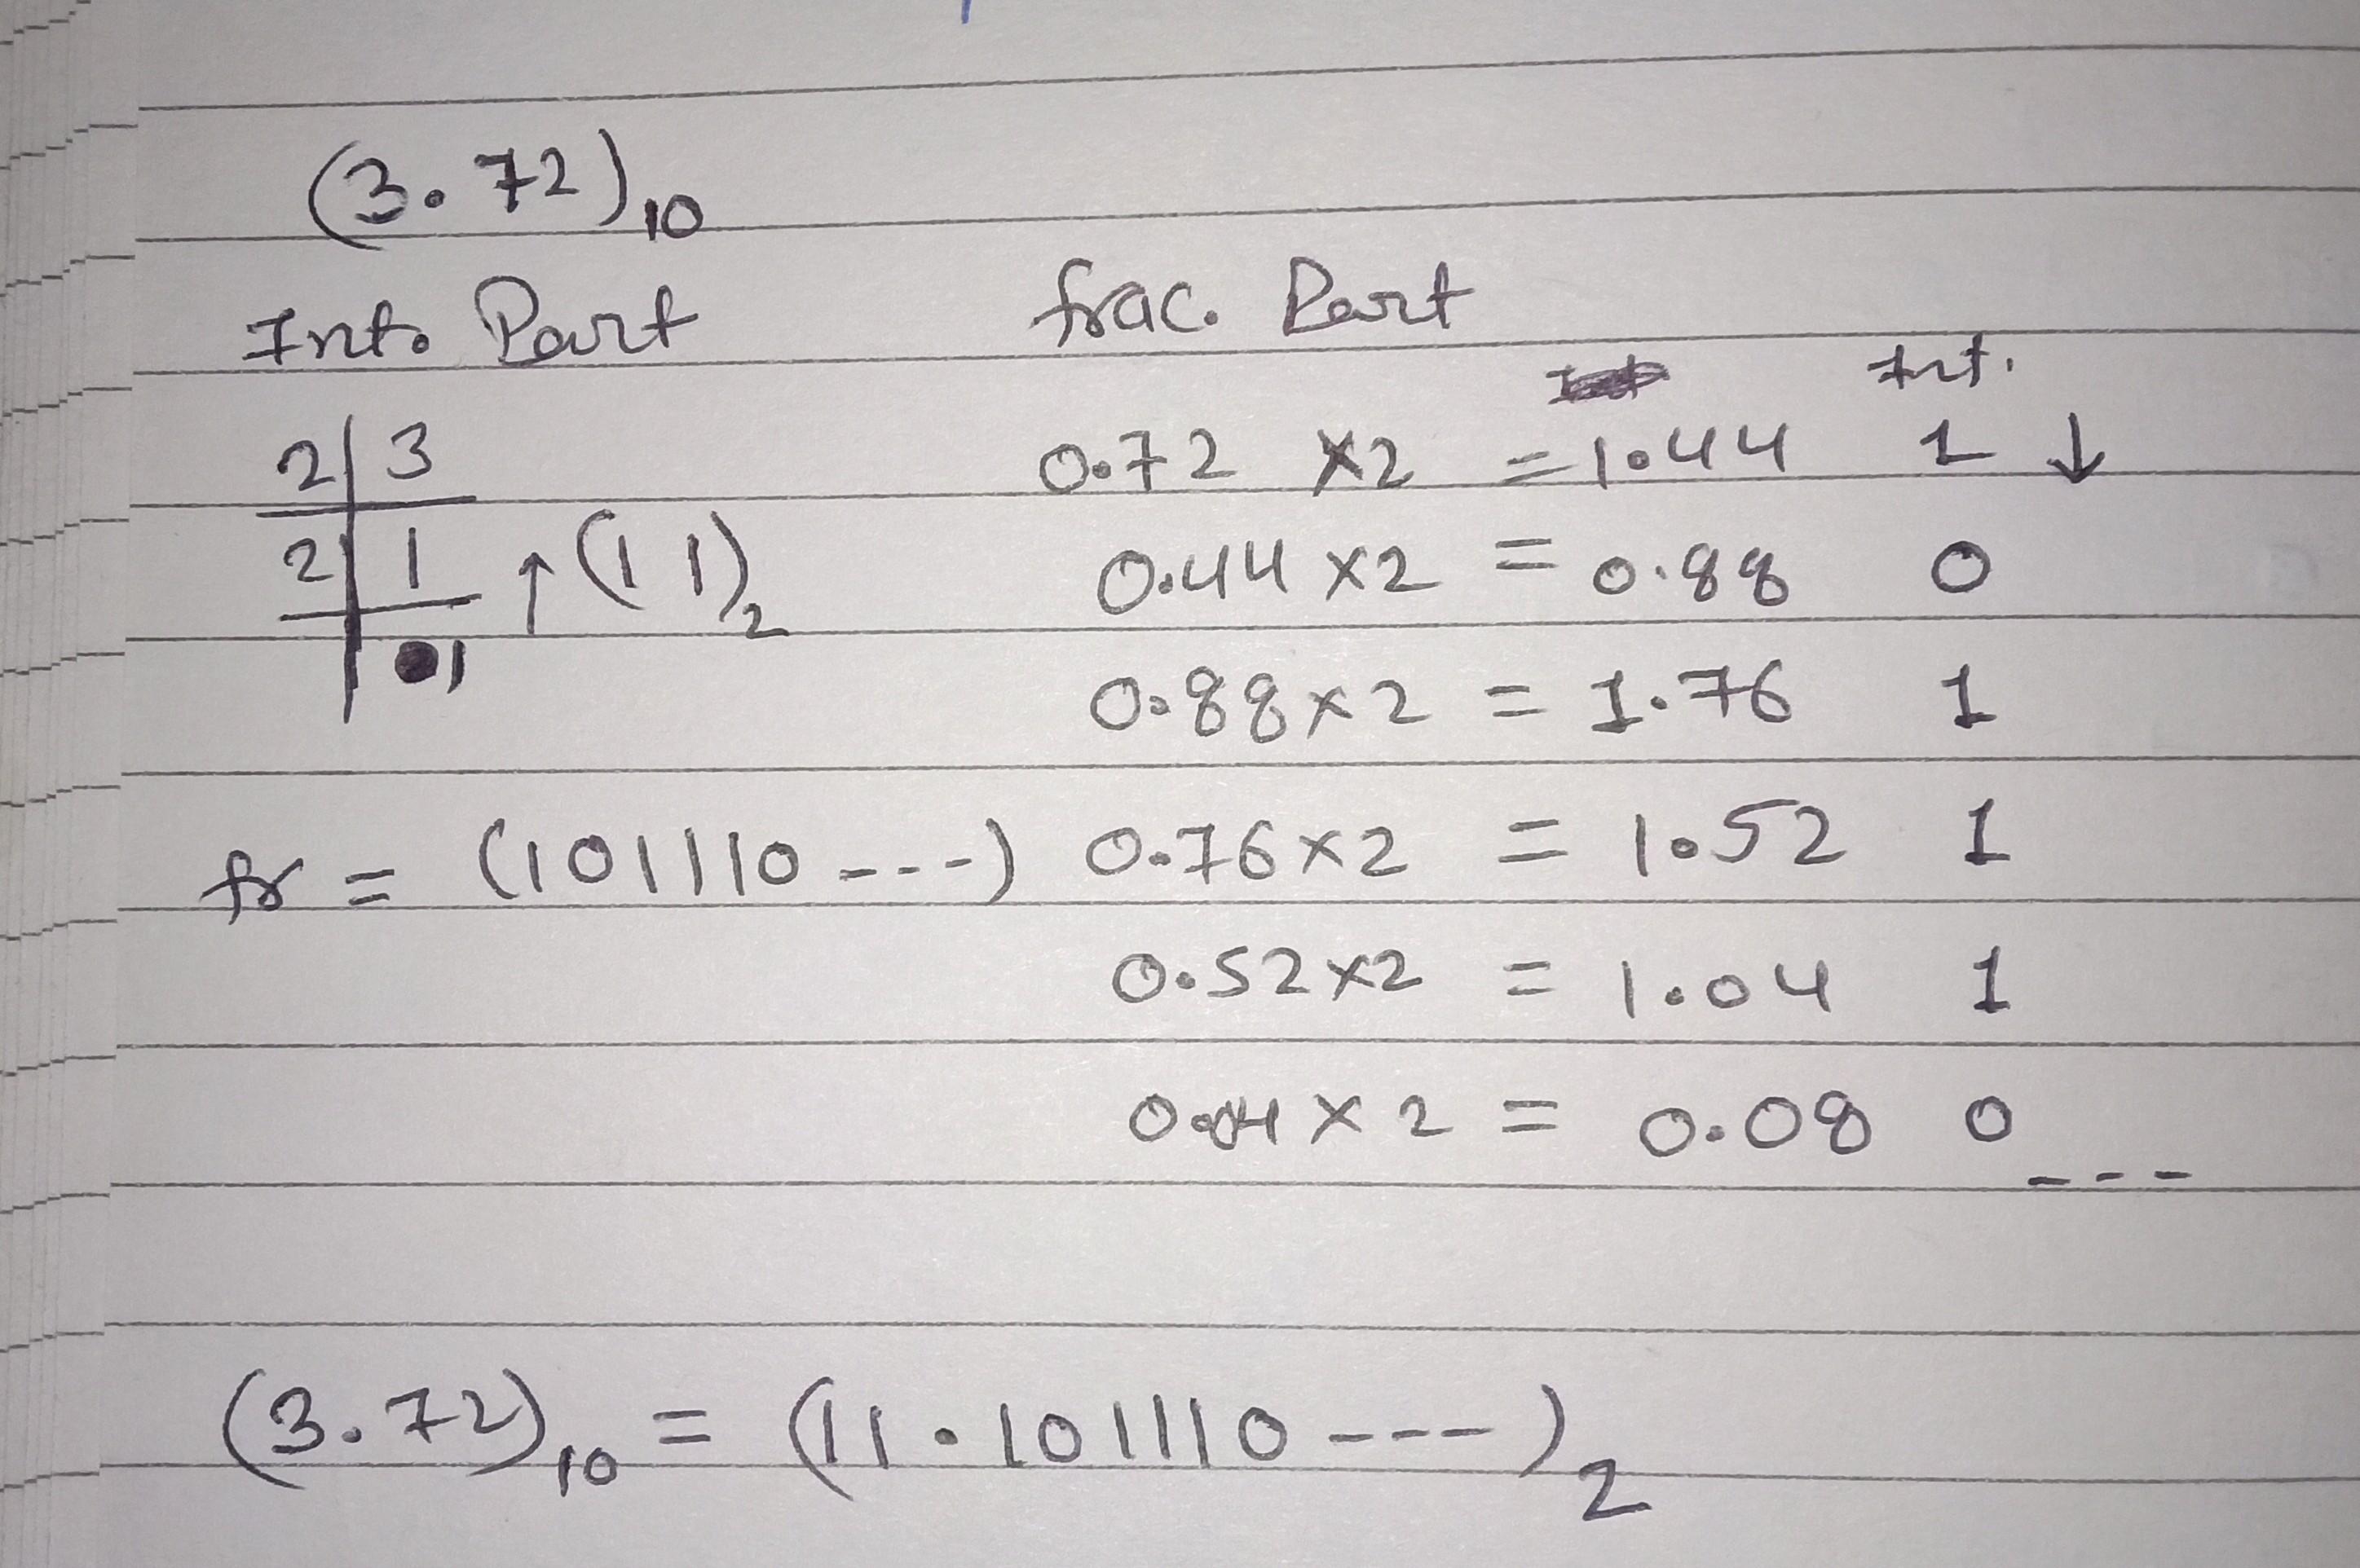 (3.72)10
Int. Part
2 3
2 1 ↑ (1 1)2
1
frac. Part
Int.
0.72 ×2 = 1.44 1 ↓
0.44 ×2 = 0.88 0
0.88×2 = 1.76 1
0.76×2 = 1.52 1
0.52×2 = 1.04 1
0.04 × 2 = 0.08 0 ---
fr = (101110 ---)
(3.72)10 = (11.101110 ---)2